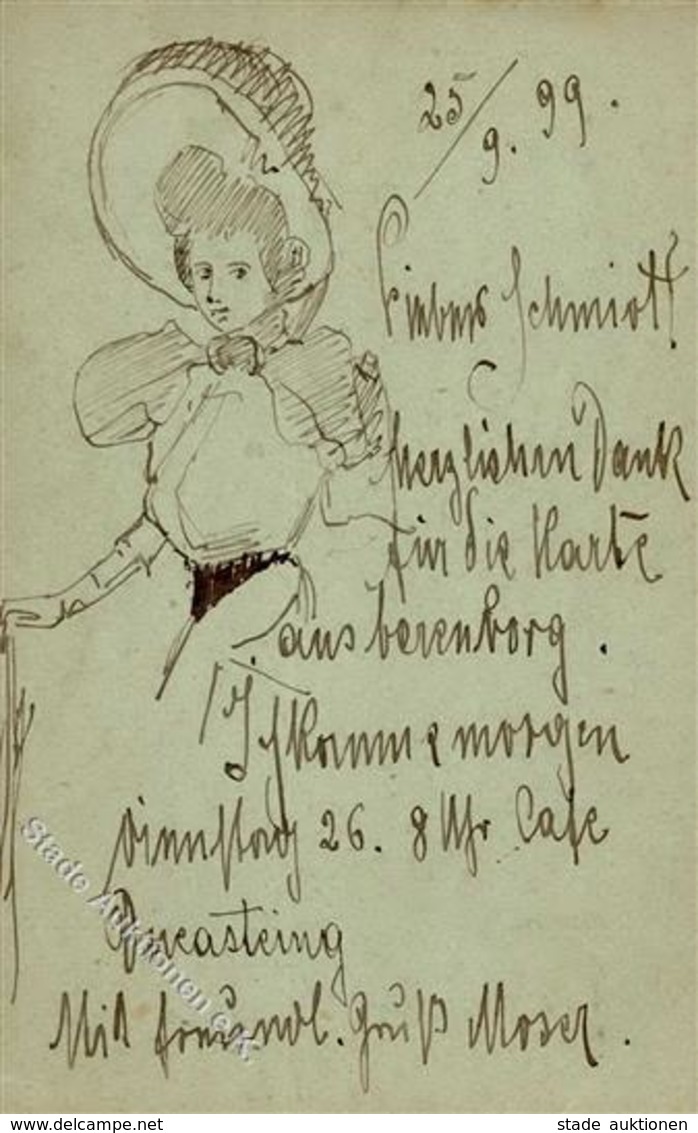 25/9. 99.
Lieber Schmidt!
herzlichen Dank
für die Karte
aus
Ich komme morgen
Dienstag 26. 8 Uhr Cafe
Mit freundl. Gruß Moser.
Stade Auktionen e.K.
www.delcampe.net
stade auktionen